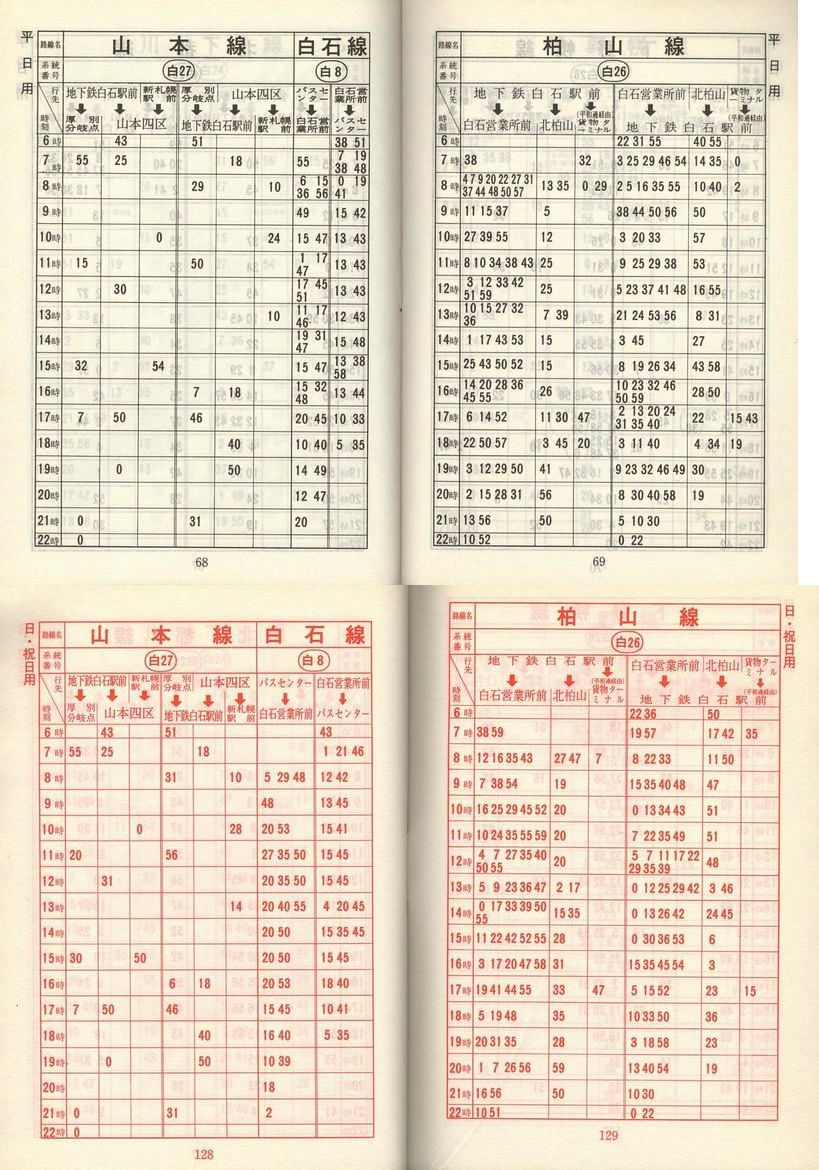 平日用
路線名 山本線 白石線
系統番号 白27 白8
行先 地下鉄白石駅前 新札幌駅前 厚別分岐点 山本四区 バスセンター 白石営業所前
時刻 厚別分岐点 山本四区 地下鉄白石駅前 新札幌駅前 白石営業所前 バスセンター
6時 43 51 38 51
7時 55 25 18 55 7 19 38 48
8時 29 10 6 15 36 56 0 19 41
9時 49 15 42
10時 0 24 15 47 13 43
11時 15 50 1 17 47 13 43
12時 30 17 45 51 13 43
13時 10 11 17 46 12 43
14時 19 31 47 15 48
15時 32 54 15 47 13 38 58
16時 7 18 15 32 48 13 44
17時 7 50 46 20 45 10 33
18時 40 10 40 5 35
19時 0 50 14 49
20時 12 47
21時 0 31 20
22時 0
68
平日用
路線名 柏山線
系統番号 白26
行先 地下鉄白石駅前 白石営業所前 北柏山 貨物ターミナル
時刻 白石営業所前 北柏山 (平和通経由)貨物ターミナル 地下鉄白石駅前 (平和通経由)
6時 22 31 55 40 55
7時 38 32 3 25 29 46 54 14 35 0
8時 4 7 9 20 22 27 31 37 44 48 50 57 13 35 0 29 2 5 16 35 55 10 40 2
9時 11 15 37 5 38 44 50 56 50
10時 27 39 55 12 3 20 33 57
11時 8 10 34 38 43 25 9 25 29 38 53
12時 3 12 33 42 51 59 25 5 23 37 41 48 16 55
13時 10 15 27 32 36 7 39 21 24 53 56 8 31
14時 1 17 43 53 15 3 45 27
15時 25 43 50 52 15 8 19 26 34 43 58
16時 14 20 28 36 45 55 26 10 23 32 46 50 59 28 50
17時 6 14 52 11 30 47 2 13 20 24 31 35 40 22 15 43
18時 22 50 57 3 45 20 3 11 40 4 34 19
19時 3 12 29 50 41 9 23 32 46 49 30
20時 2 15 28 31 56 8 30 40 58 19
21時 13 56 50 5 10 30
22時 10 52 0 22
69
日・祝日用
路線名 山本線 白石線
系統番号 白27 白8
行先 地下鉄白石駅前 新札幌駅前 厚別分岐点 山本四区 バスセンター 白石営業所前
時刻 厚別分岐点 山本四区 地下鉄白石駅前 新札幌駅前 白石営業所前 バスセンター
6時 43 51 43
7時 55 25 18 1 21 46
8時 31 10 5 29 48 12 42
9時 48 13 45
10時 0 28 20 53 15 41
11時 20 56 27 35 50 15 45
12時 31 20 35 50 15 45
13時 14 20 40 55 4 20 45
14時 20 50 15 35 45
15時 30 50 20 50 15 45
16時 6 18 20 53 18 40
17時 7 50 46 15 45 10 41
18時 40 16 40 5 35
19時 0 50 10 39
20時 18
21時 0 31 2
22時 0
128
日・祝日用
路線名 柏山線
系統番号 白26
行先 地下鉄白石駅前 白石営業所前 北柏山 貨物ターミナル
時刻 白石営業所前 北柏山 (平和通経由)貨物ターミナル 地下鉄白石駅前 (平和通経由)
6時 22 36 50
7時 38 59 19 57 17 42 35
8時 12 16 35 43 27 47 7 8 22 33 11 50
9時 7 38 54 19 15 35 40 48 47
10時 16 25 29 45 52 20 0 13 34 43 51
11時 10 24 35 55 59 20 7 22 35 49 51
12時 4 7 27 35 40 50 55 20 5 7 11 17 22 29 35 39 48
13時 5 9 23 36 47 2 17 0 12 25 29 42 3 46
14時 0 17 33 39 50 55 15 35 0 13 26 42 24 45
15時 11 22 42 52 55 28 0 30 36 53 6
16時 3 17 20 47 58 31 15 35 45 54 3
17時 19 41 44 55 33 47 5 15 52 23 15
18時 5 19 48 35 10 33 50 36
19時 20 31 35 28 3 18 58 23
20時 1 7 26 56 59 13 40 54 19
21時 16 56 50 10 30
22時 10 51 0 22
129